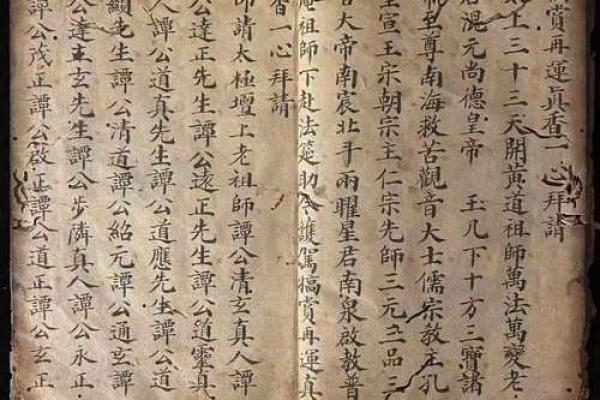 賞再運眞香一心拜請
上三十三天開黃道祖師萬法萬變老
君混元尚德皇帝 玉几下十方三寶諸
至尊南海救苦觀音大士儒宗教主孔
宣王宗朝宗主仁宗先師三元三品三
大帝南宸北斗兩曜星君南泉啟教普
庵祖師下赴法筵助令護駕犒賞再運真
香一心拜請
師請太極壇上老祖師譚公清玄真人譚
公達正先生譚公遠正先生譚公道靈真
人譚公道真先生譚公道應先生譚公道
顯先生譚公清道譚公紹元譚公通玄譚
公達玄先生譚公步隣真人譚公永正
譚公茂正譚公啟正譚公道正譚公玄正